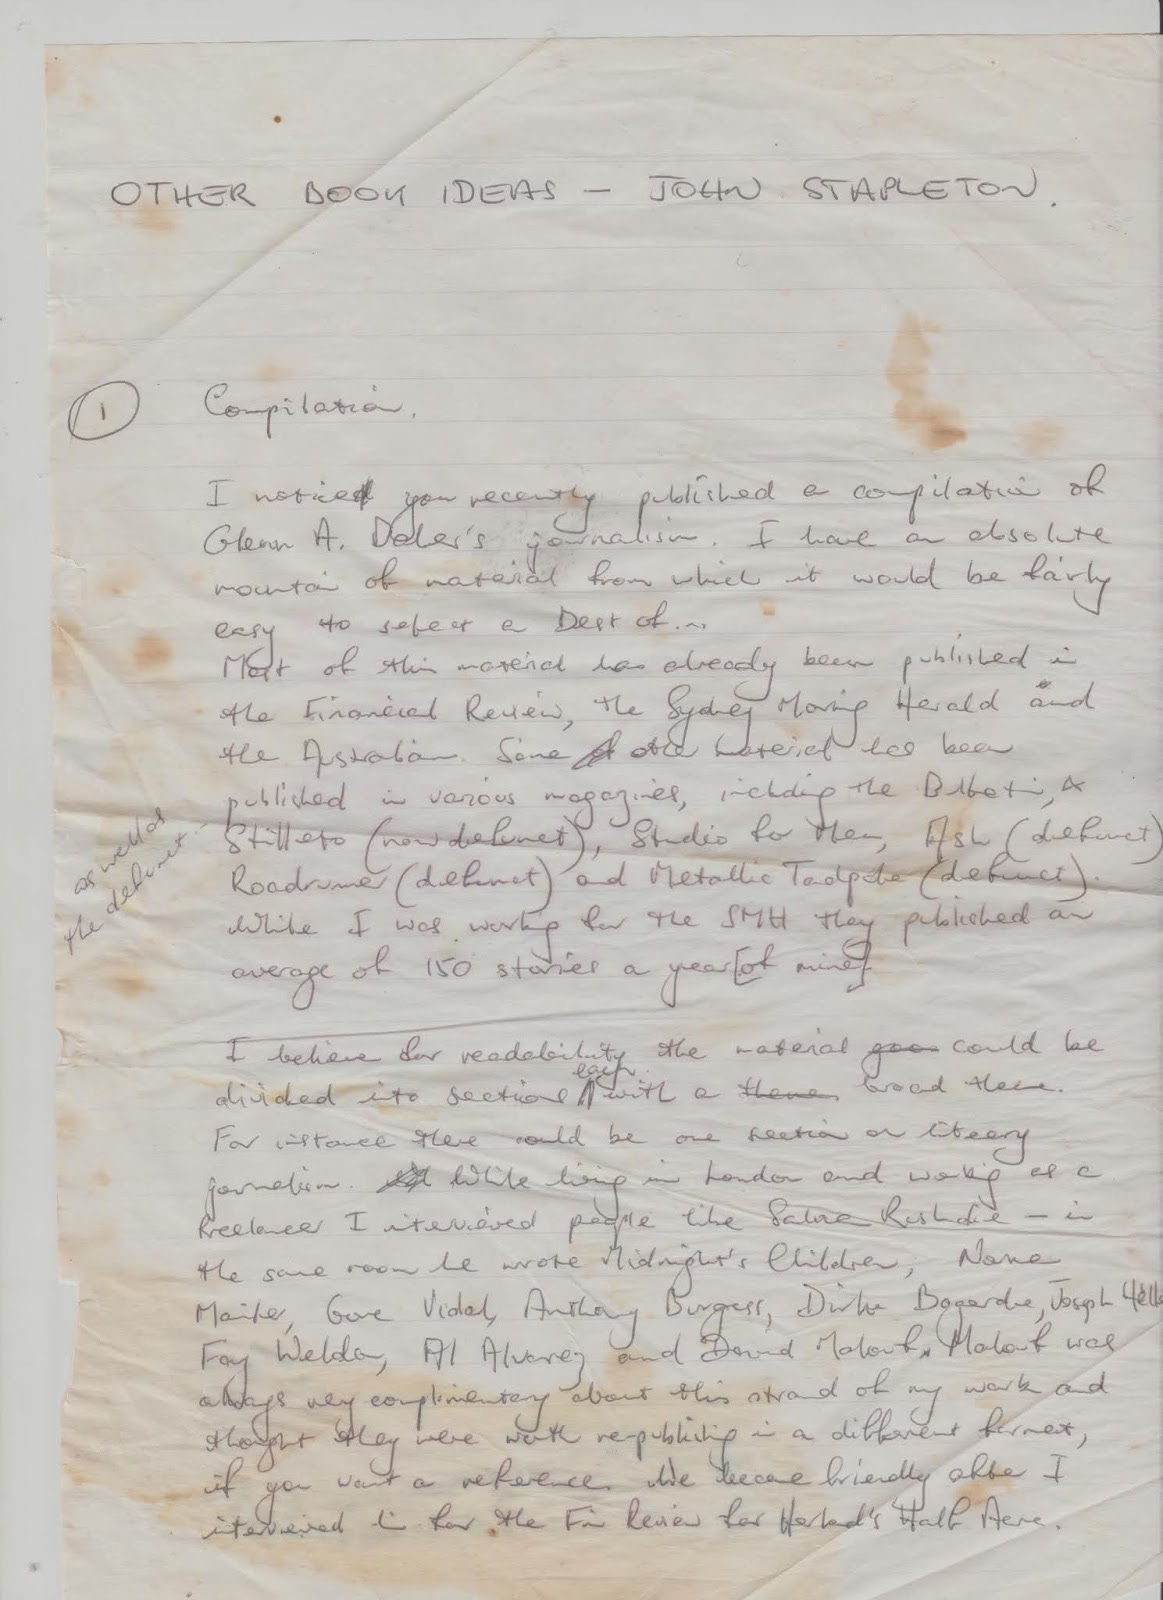 OTHER BOOK IDEAS — JOHN STAPLETON.
1 Compilation.
I noticed you recently published a compilation of
Glenn A. Baker's journalism. I have an absolute
mountain of material from which it would be fairly
easy to select a Best of...
Most of this material has already been published in
the Financial Review, the Sydney Morning Herald and
the Australian. Some other material has been
published in various magazines, including the Bulletin,
as well as
the defunct
Stilleto (now defunct), Studio for Men, Ash (defunct)
Roadrunner (defunct) and Metallic Tadpole (defunct).
While I was working for the SMH they published an
average of 150 stories a year [of mine]
I believe for readability the material could be
divided into sections each with a theme broad theme.
For instance there could be one section on literary
journalism. While living in London and working as a
freelancer I interviewed people like Salman Rushdie — in
the same room he wrote Midnight's Children, Norman
Mailer, Gore Vidal, Anthony Burgess, Dirke Bogarde, Joseph Heller
Fay Weldon, Al Alvarez and David Malouf. Malouf was
always very complimentary about this strand of my work and
thought they were worth re-publishing in a different format,
if you want a reference. We became friendly after I
interviewed him for the Fin Review for Harland's Half Acre.